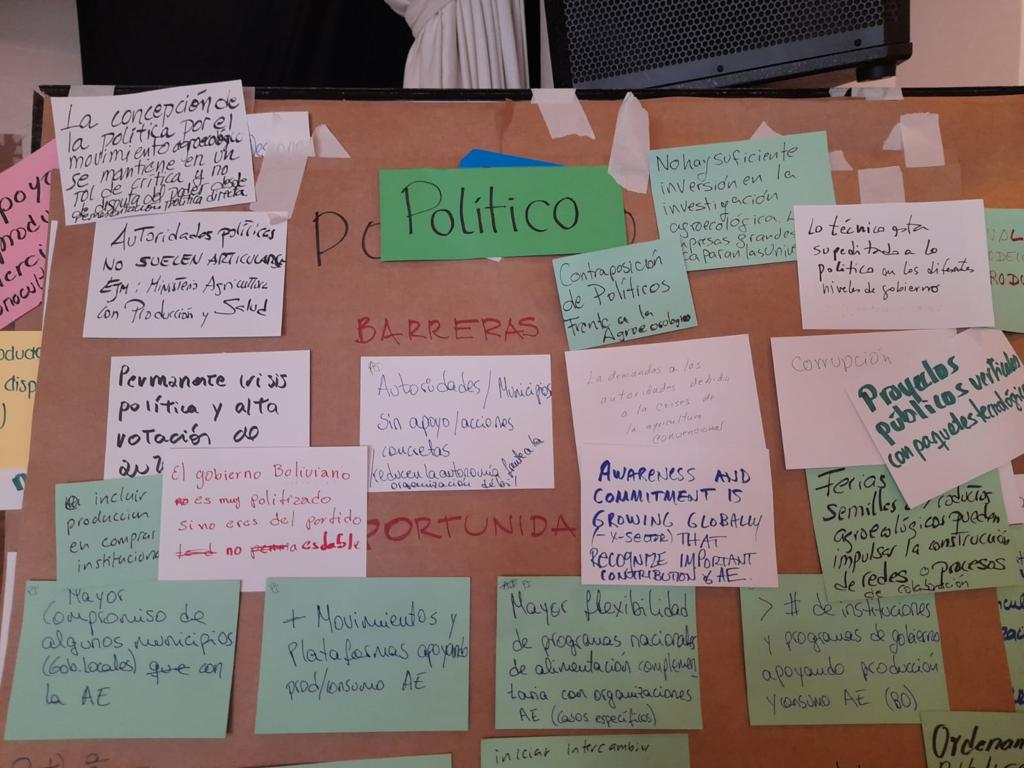 La concepción de
la política por el
movimiento agroecológico
se mantiene en un
rol de crítica y no
de disputa del poder desde
representación política directa
Político
PO
No hay suficiente
inversión en la
investigación
agroecológica.
empresas grandes
para las Univ
Autoridades políticas
no suelen articularse
Ejm: Ministerio Agricultura
con Producción y Salud
Contraposición
de Políticos
Frente a la
Agroecología
Lo técnico esta
supeditado a lo
político en los diferentes
niveles de gobierno
BARRERAS
Permanente crisis
política y alta
votación de
PS
Autoridades/Municipios
sin apoyo/acciones
concretas
reducen la autonomía frente a la
organización débil
La demandas a las
autoridades debido
a la crisis de
la agricultura
convencional
Corrupción
Proyectos
públicos verticales
con paquetes tecnológicos
incluir
produccion
en compras
institucional
El gobierno Boliviano
no es muy politizado
si no eres del partido
no es dable
PORTUNIDA
Awareness and
commitment is
growing globally
(-x-sector) that
recognize important
contribution of AE.
Ferias
Semillas productos
agroecológicos pueden
impulsar la construcción
de redes o procesos
de colaboración
PS
Mayor
Compromiso de
algunos municipios
(Gob. locales) que con
la AE
PS
+ Movimientos y
plataformas apoyando
prod/consumo AE
Mayor flexibilidad
de programas nacionales
de alimentación complemen
taria con organizaciones
AE (casos específicos)
PS
> # de instituciones
y programas de gobierno
apoyando producción
y consumo AE (BO)
iniciar intercambio
Ordenam